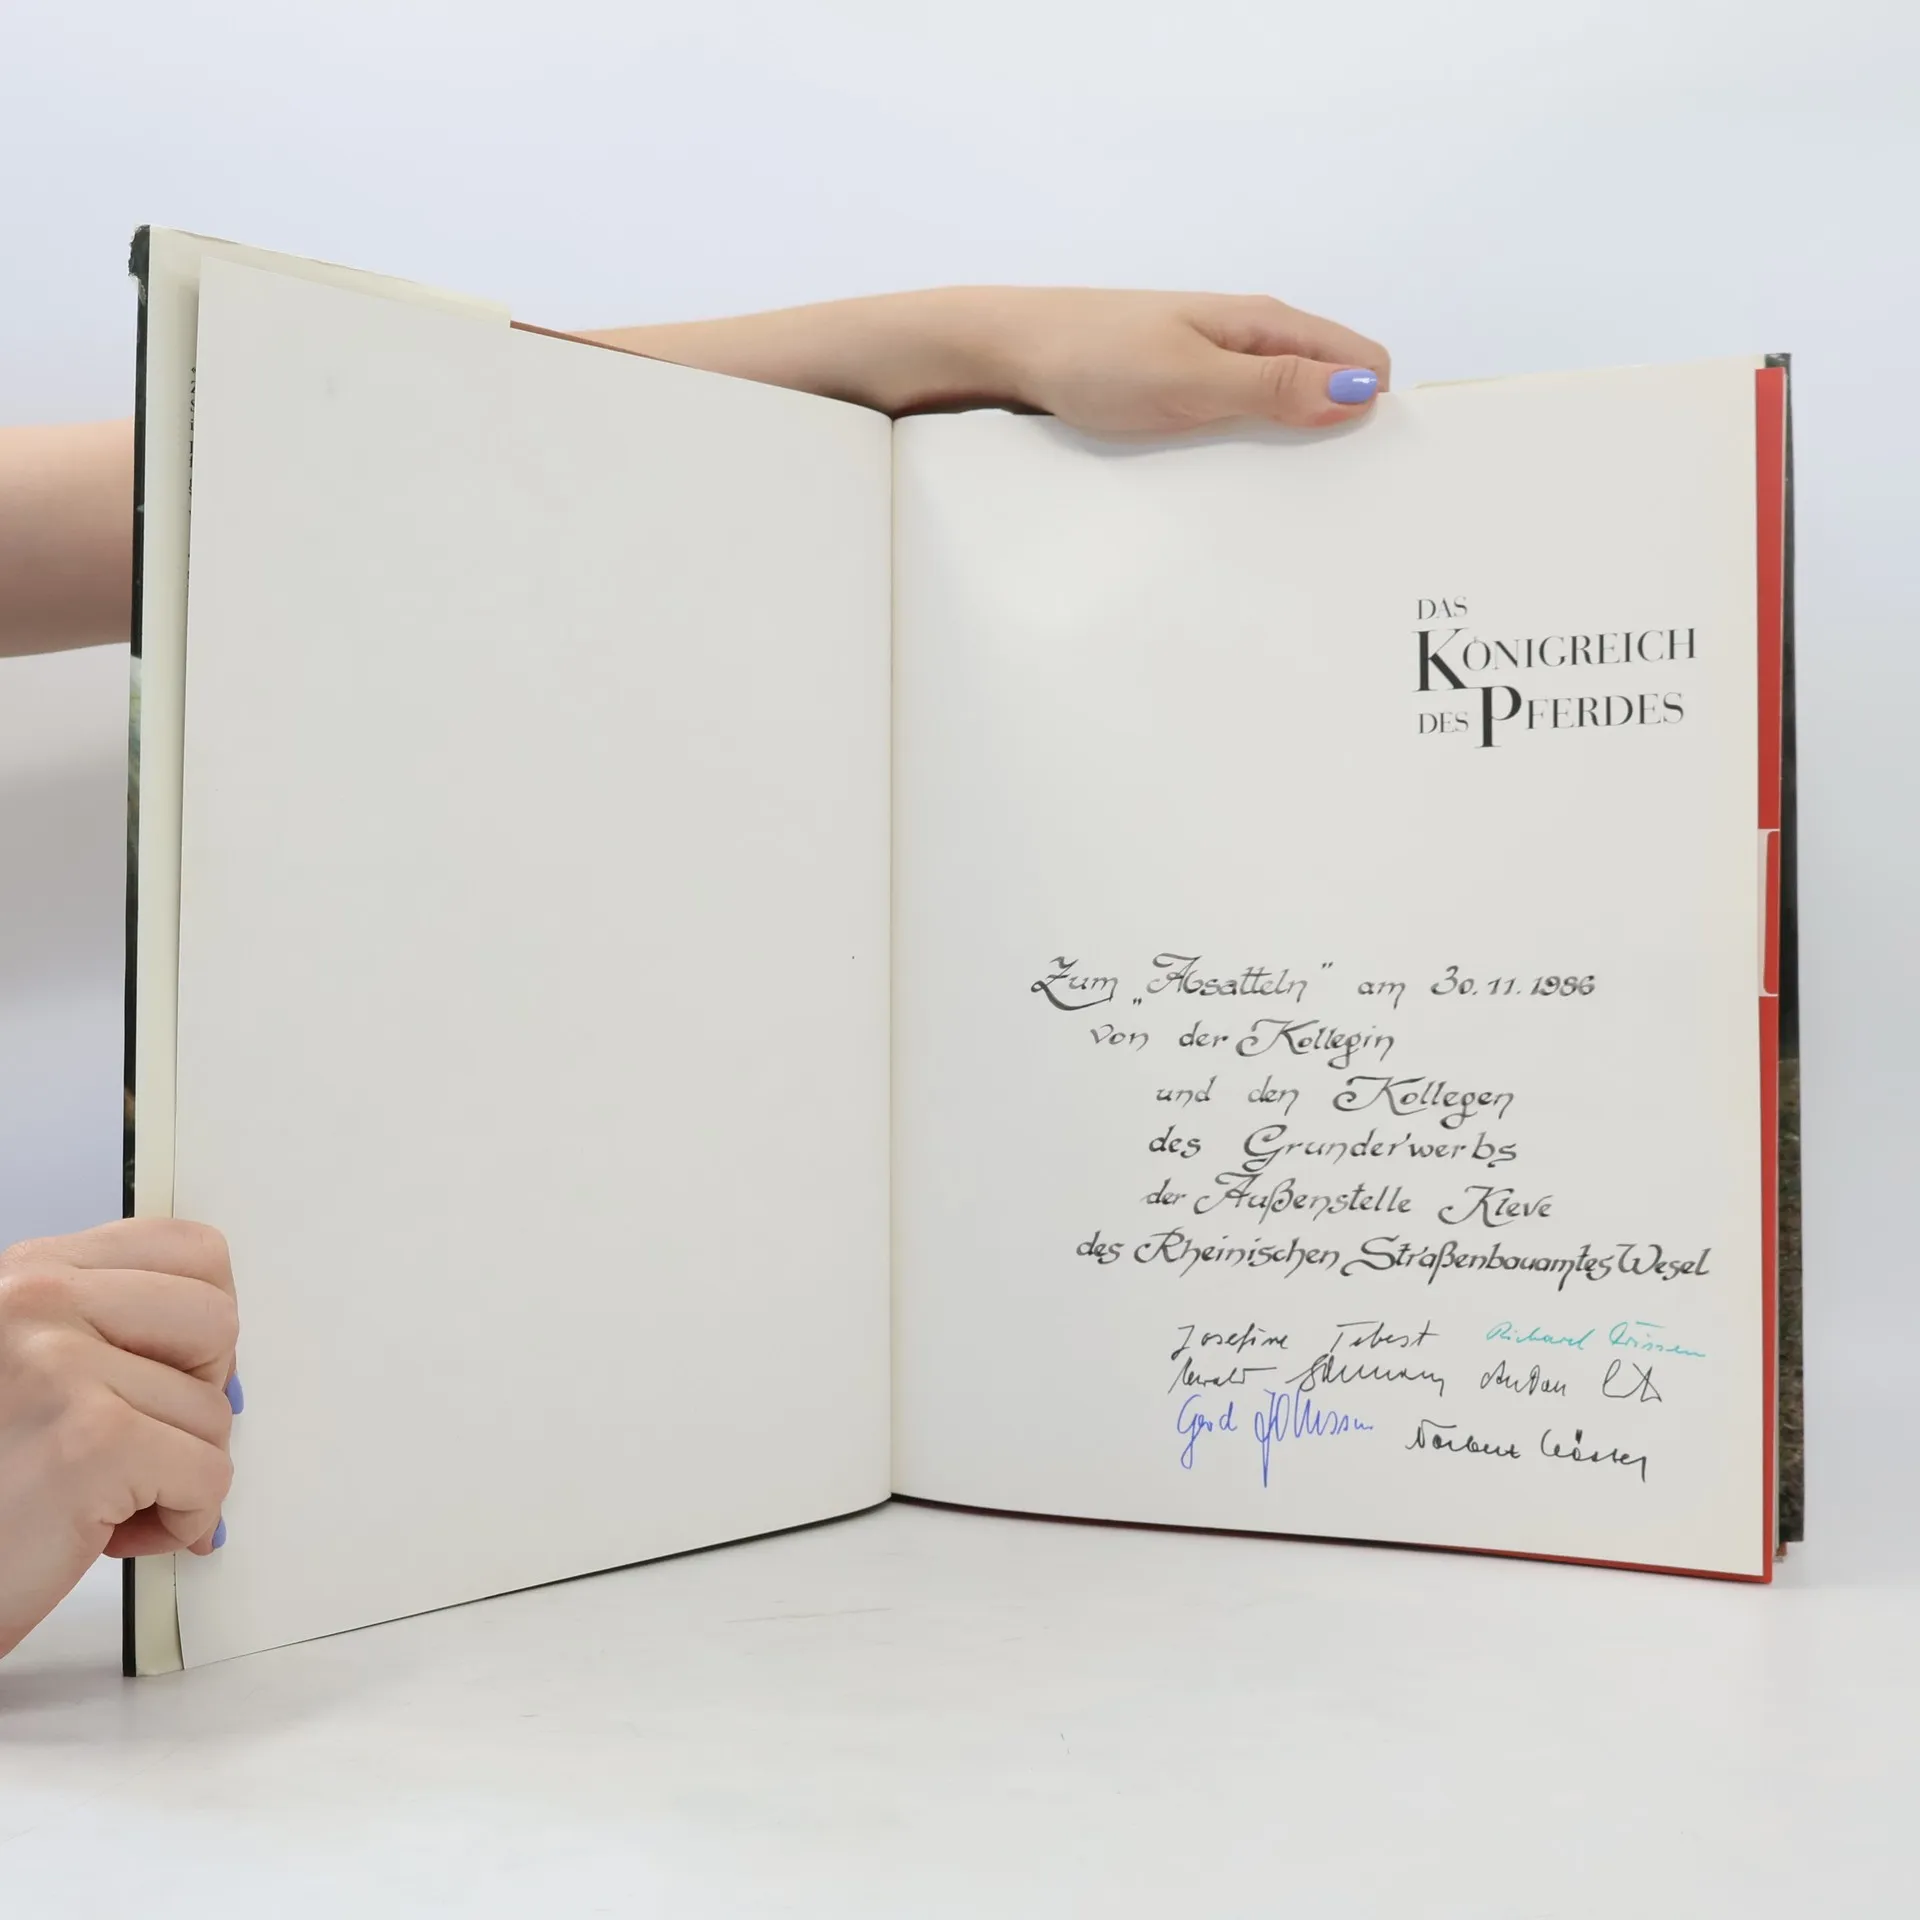 DAS
KÖNIGREICH
DES PFERDES
Zum „Absatteln" am 30.11.1986
von der Kollegin
und den Kollegen
des Grunderwerbs
der Außenstelle Kleve
des Rheinischen Straßenbauamtes Wesel
Josefine Tebest Richard
Anton
Gerd
Norbert